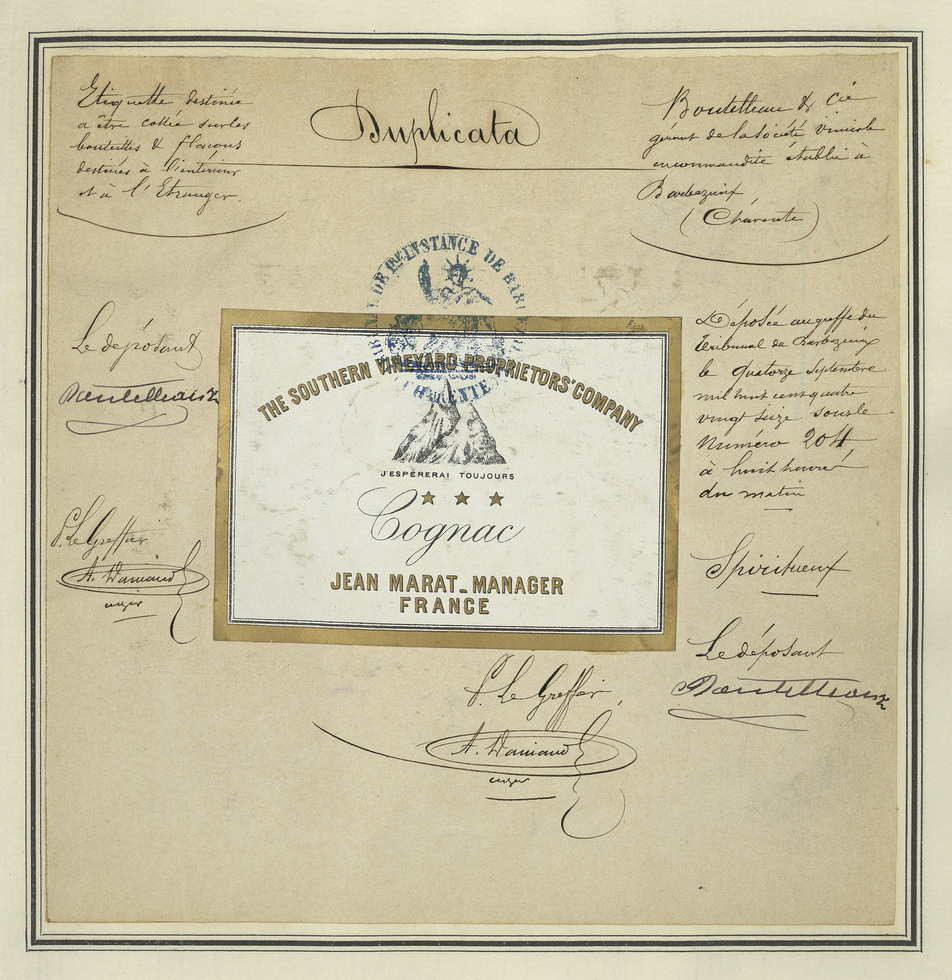 Etiquette destinée
a être collée sur les
bouteilles & flacons
destinés à l'intérieur
et à l'Etranger.
Duplicata
Boutelleau & Cie
gérant de la société vinicole
en commandite établie à
Barbezieux
(Charente)
DE 1RE INSTANCE DE BAR
CHARENTE
Le déposant
Boutelleau
P. Le Greffier
THE SOUTHERN VINEYARD PROPRIETORS' COMPANY
J'ESPÈRERAI TOUJOURS
Cognac
JEAN MARAT_MANAGER
FRANCE
Déposée au greffe du
Tribunal de Barbezieux
le quatorze Septembre
mil huit cent quatre
vingt seize sous le
Numéro 204
à huit heures
du matin
Spiritueux
Le déposant
Boutelleau
P. Le Greffier